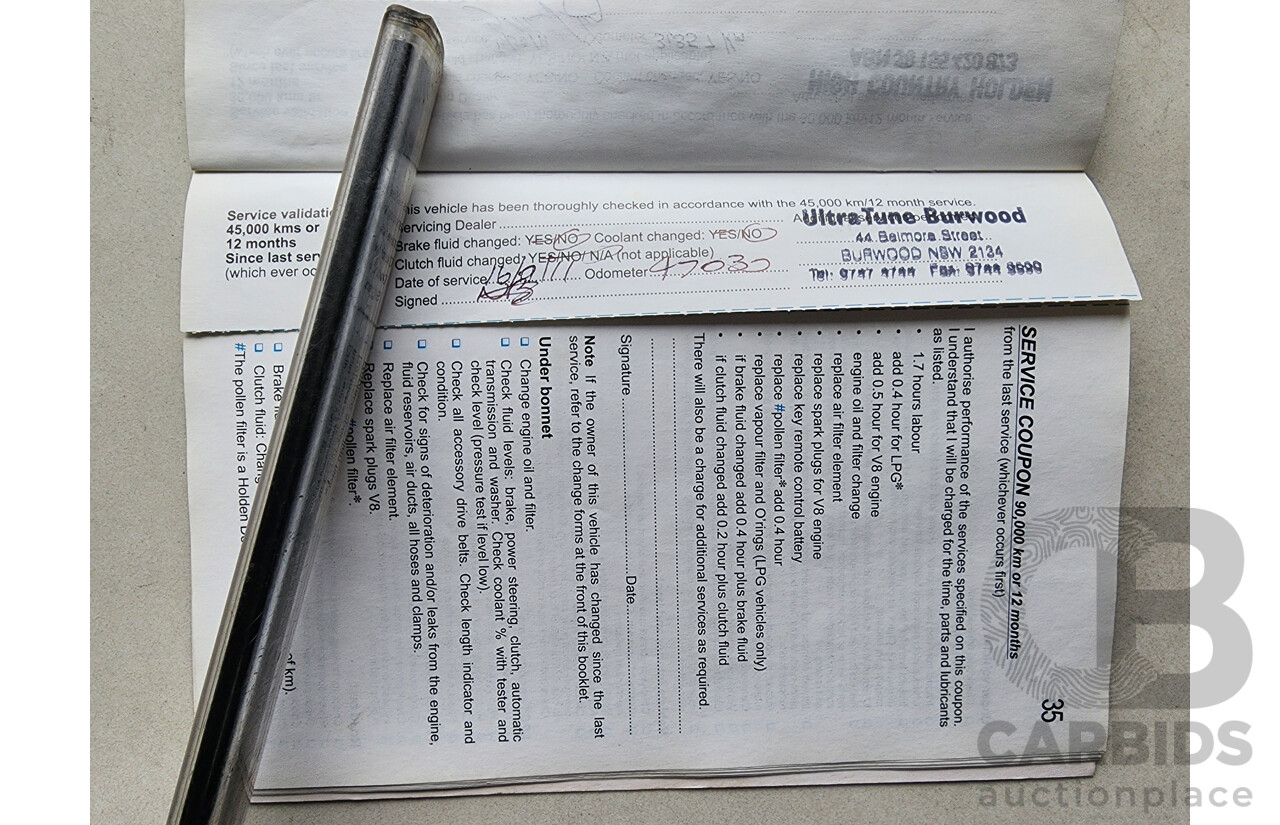 Service validati
45,000 kms or
12 months
Since last ser
(which ever oc
his vehicle has been thoroughly checked in accordance with the 45,000 km/12 month service.
ervicing Dealer
Brake fluid changed: YES/NO Coolant changed: YES/NO
Clutch fluid changed: YES/NO/ N/A (not applicable)
Date of service Odometer 47030
Signed
UltraTune Burwood
44 Belmore Street
BURWOOD NSW 2134
Tel: 9747 4744 Fax: 9744 9999
HIGH COUNTRY HOLDEN
35
SERVICE COUPON 90,000 km or 12 months
from the last service (whichever occurs first)
I authorise performance of the services specified on this coupon.
I understand that I will be charged for the time, parts and lubricants
as listed.
• 1.7 hours labour
• add 0.4 hour for LPG*
• add 0.5 hour for V8 engine
• engine oil and filter change
• replace air filter element
• replace spark plugs for V8 engine
• replace key remote control battery
• replace #pollen filter* add 0.4 hour
• replace vapour filter and O'rings (LPG vehicles only)
• if brake fluid changed add 0.4 hour plus brake fluid
• if clutch fluid changed add 0.2 hour plus clutch fluid
There will also be a charge for additional services as required.
Signature Date
Note If the owner of this vehicle has changed since the last
service, refer to the change forms at the front of this booklet.
Under bonnet
❑ Change engine oil and filter.
❑ Check fluid levels: brake, power steering, clutch, automatic
transmission and washer. Check coolant % with tester and
check level (pressure test if level low).
❑ Check all accessory drive belts. Check length indicator and
condition.
❑ Check for signs of deterioration and/or leaks from the engine,
fluid reservoirs, air ducts, all hoses and clamps.
❑ Replace air filter element.
Replace spark plugs V8.
#pollen filter*.
❑ Brake
❑ Clutch fluid: Chang
of km).
#The pollen filter is a Holden
CB
CARBIDS
auctionplace